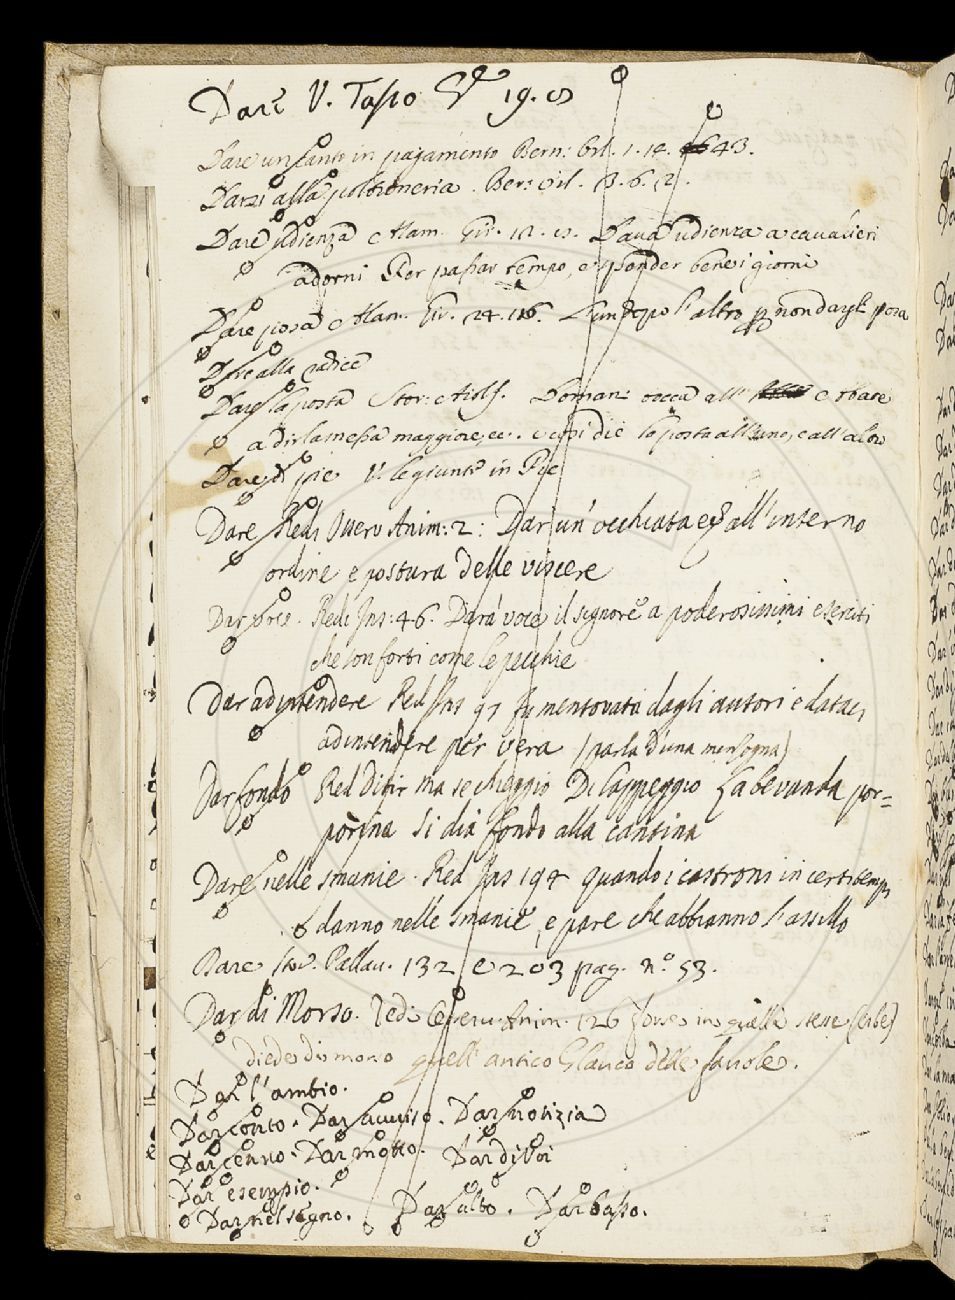 Dare V. Tasso 19.
Dare un canto in pagamento Bern: Orl. 1. 14. 43.
Darsi alla poltroneria. Bern: Orl. 3. 6. 12.
Dare udienza Alam. Gir. Dava udienza a cavalieri
adorni Per passar tempo, e spender bene i giorni
Dare posa Alam. Gir. 24. 116. L'un dopo l'altro p non dargli posa
Dare alla radice
Dar la posta Stor: Aiolf.
a dir la messa maggiore, e così diè la posta all'uno, e all'altro
Dare di piè V. le giunte in Piè
Dare Redi Osserv. Anim: 2: Dar un' occhiata all'interno
ordine e postura delle viscere
Dar voce. Redi Ins: 46. Darà voce il signore a poderosissimi eserciti
che son forti come le pecchie
Dar ad intendere Red Ins 97 fu mentovata dagli autori e data
ad intendere per vera (parla d'una menzogna)
Dar fondo Red Ditir Ma se chieggio Di Lappeggio La bevanda por=
porina Si dia fondo alla cantina
Dare nelle smanie. Red Ins 194 quando i castroni in certi tempi
danno nelle smanie, e pare che abbiano l'assillo
Dare Stor. Pallav. 132 e 203 pag. n.º 53.
Dar di Morso. Redi Osserv. Anim. 126 forse in quelle stesse (erbe)
diede di morso quell' antico Glauco delle favole.
Dar l'ambio.
Dar conto. Dar avviso. Dar notizia
Dar cenno. Dar motto. Dar di Voi
Dar esempio.
Dar nel segno. Dar alto. Dar basso.